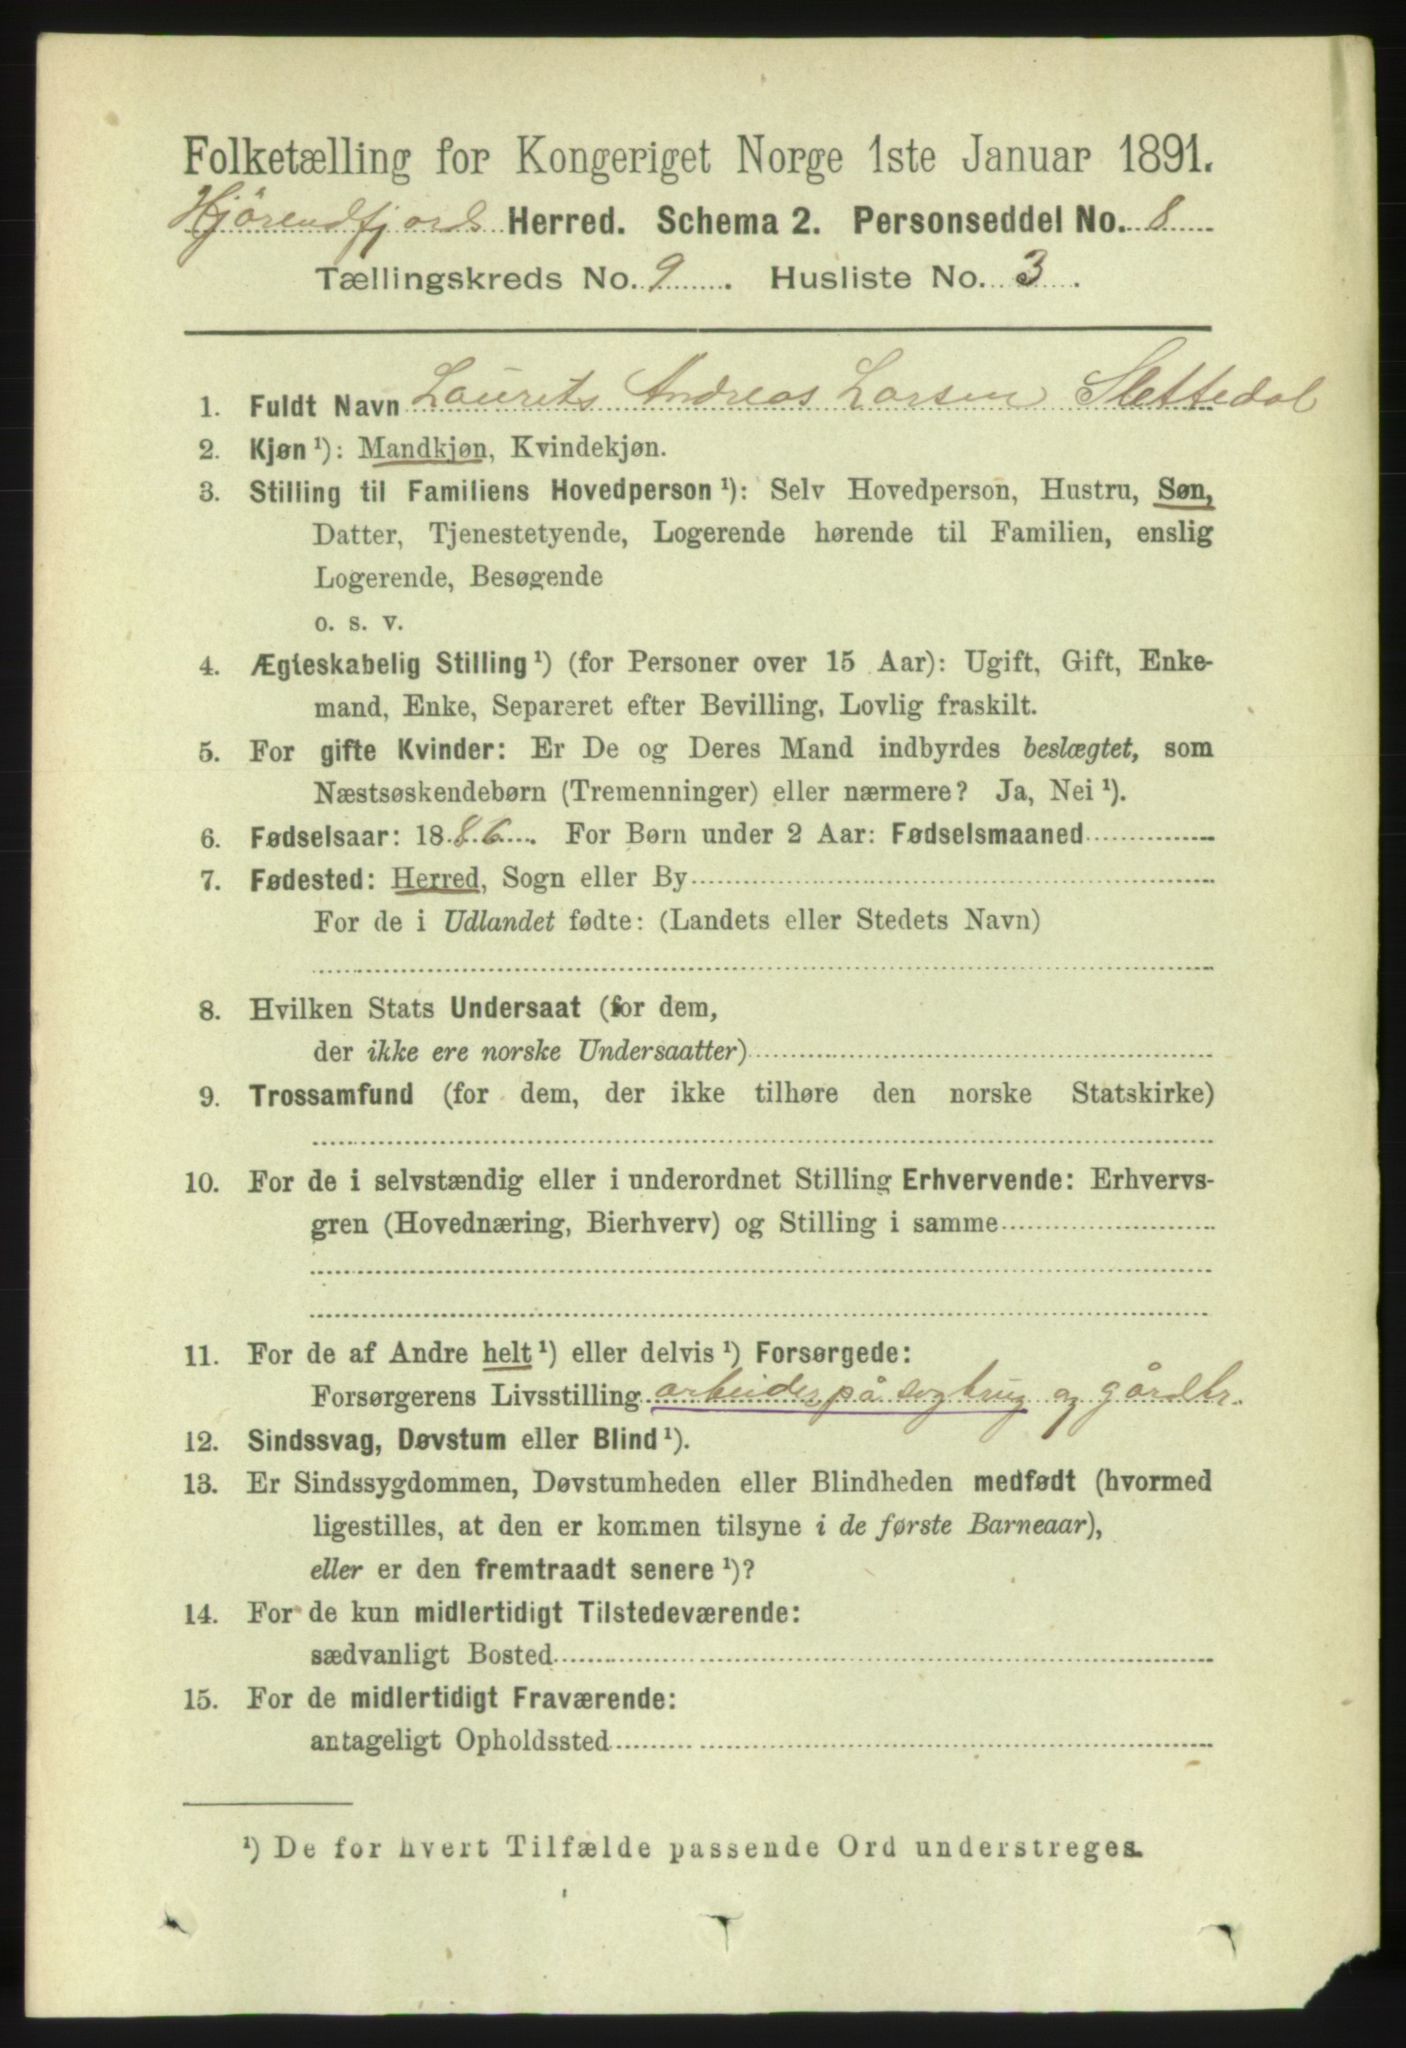 Folketælling for Kongeriget Norge 1ste Januar 1891.
Hjørendfjords Herred. Schema 2. Personseddel No. 8
Tællingskreds No. 9. Husliste No. 3.
1. Fuldt Navn Laurits Andreas Larsen Slettedal
2. Kjøn ¹): Mandkjøn, Kvindekjøn.
3. Stilling til Familiens Hovedperson ¹): Selv Hovedperson, Hustru, Søn,
Datter, Tjenestetyende, Logerende hørende til Familien, enslig
Logerende, Besøgende
o. s. v.
4. Ægteskabelig Stilling ¹) (for Personer over 15 Aar): Ugift, Gift, Enke-
mand, Enke, Separeret efter Bevilling, Lovlig fraskilt.
5. For gifte Kvinder: Er De og Deres Mand indbyrdes beslægtet, som
Næstsøskendebørn (Tremenninger) eller nærmere? Ja, Nei ¹).
6. Fødselsaar: 1886. For Børn under 2 Aar: Fødselsmaaned
7. Fødested: Herred, Sogn eller By
For de i Udlandet fødte: (Landets eller Stedets Navn)
8. Hvilken Stats Undersaat (for dem,
der ikke ere norske Undersaatter)
9. Trossamfund (for dem, der ikke tilhøre den norske Statskirke)
10. For de i selvstændig eller i underordnet Stilling Erhvervende: Erhvervs-
gren (Hovednæring, Bierhverv) og Stilling i samme
11. For de af Andre helt ¹) eller delvis ¹) Forsørgede:
Forsørgerens Livsstilling arbeider på og gårdbr.
12. Sindssvag, Døvstum eller Blind ¹).
13. Er Sindssygdommen, Døvstumheden eller Blindheden medfødt (hvormed
ligestilles, at den er kommen tilsyne i de første Barneaar),
eller er den fremtraadt senere ¹)?
14. For de kun midlertidigt Tilstedeværende:
sædvanligt Bosted
15. For de midlertidigt Fraværende:
antageligt Opholdssted
¹) De for hvert Tilfælde passende Ord understreges.